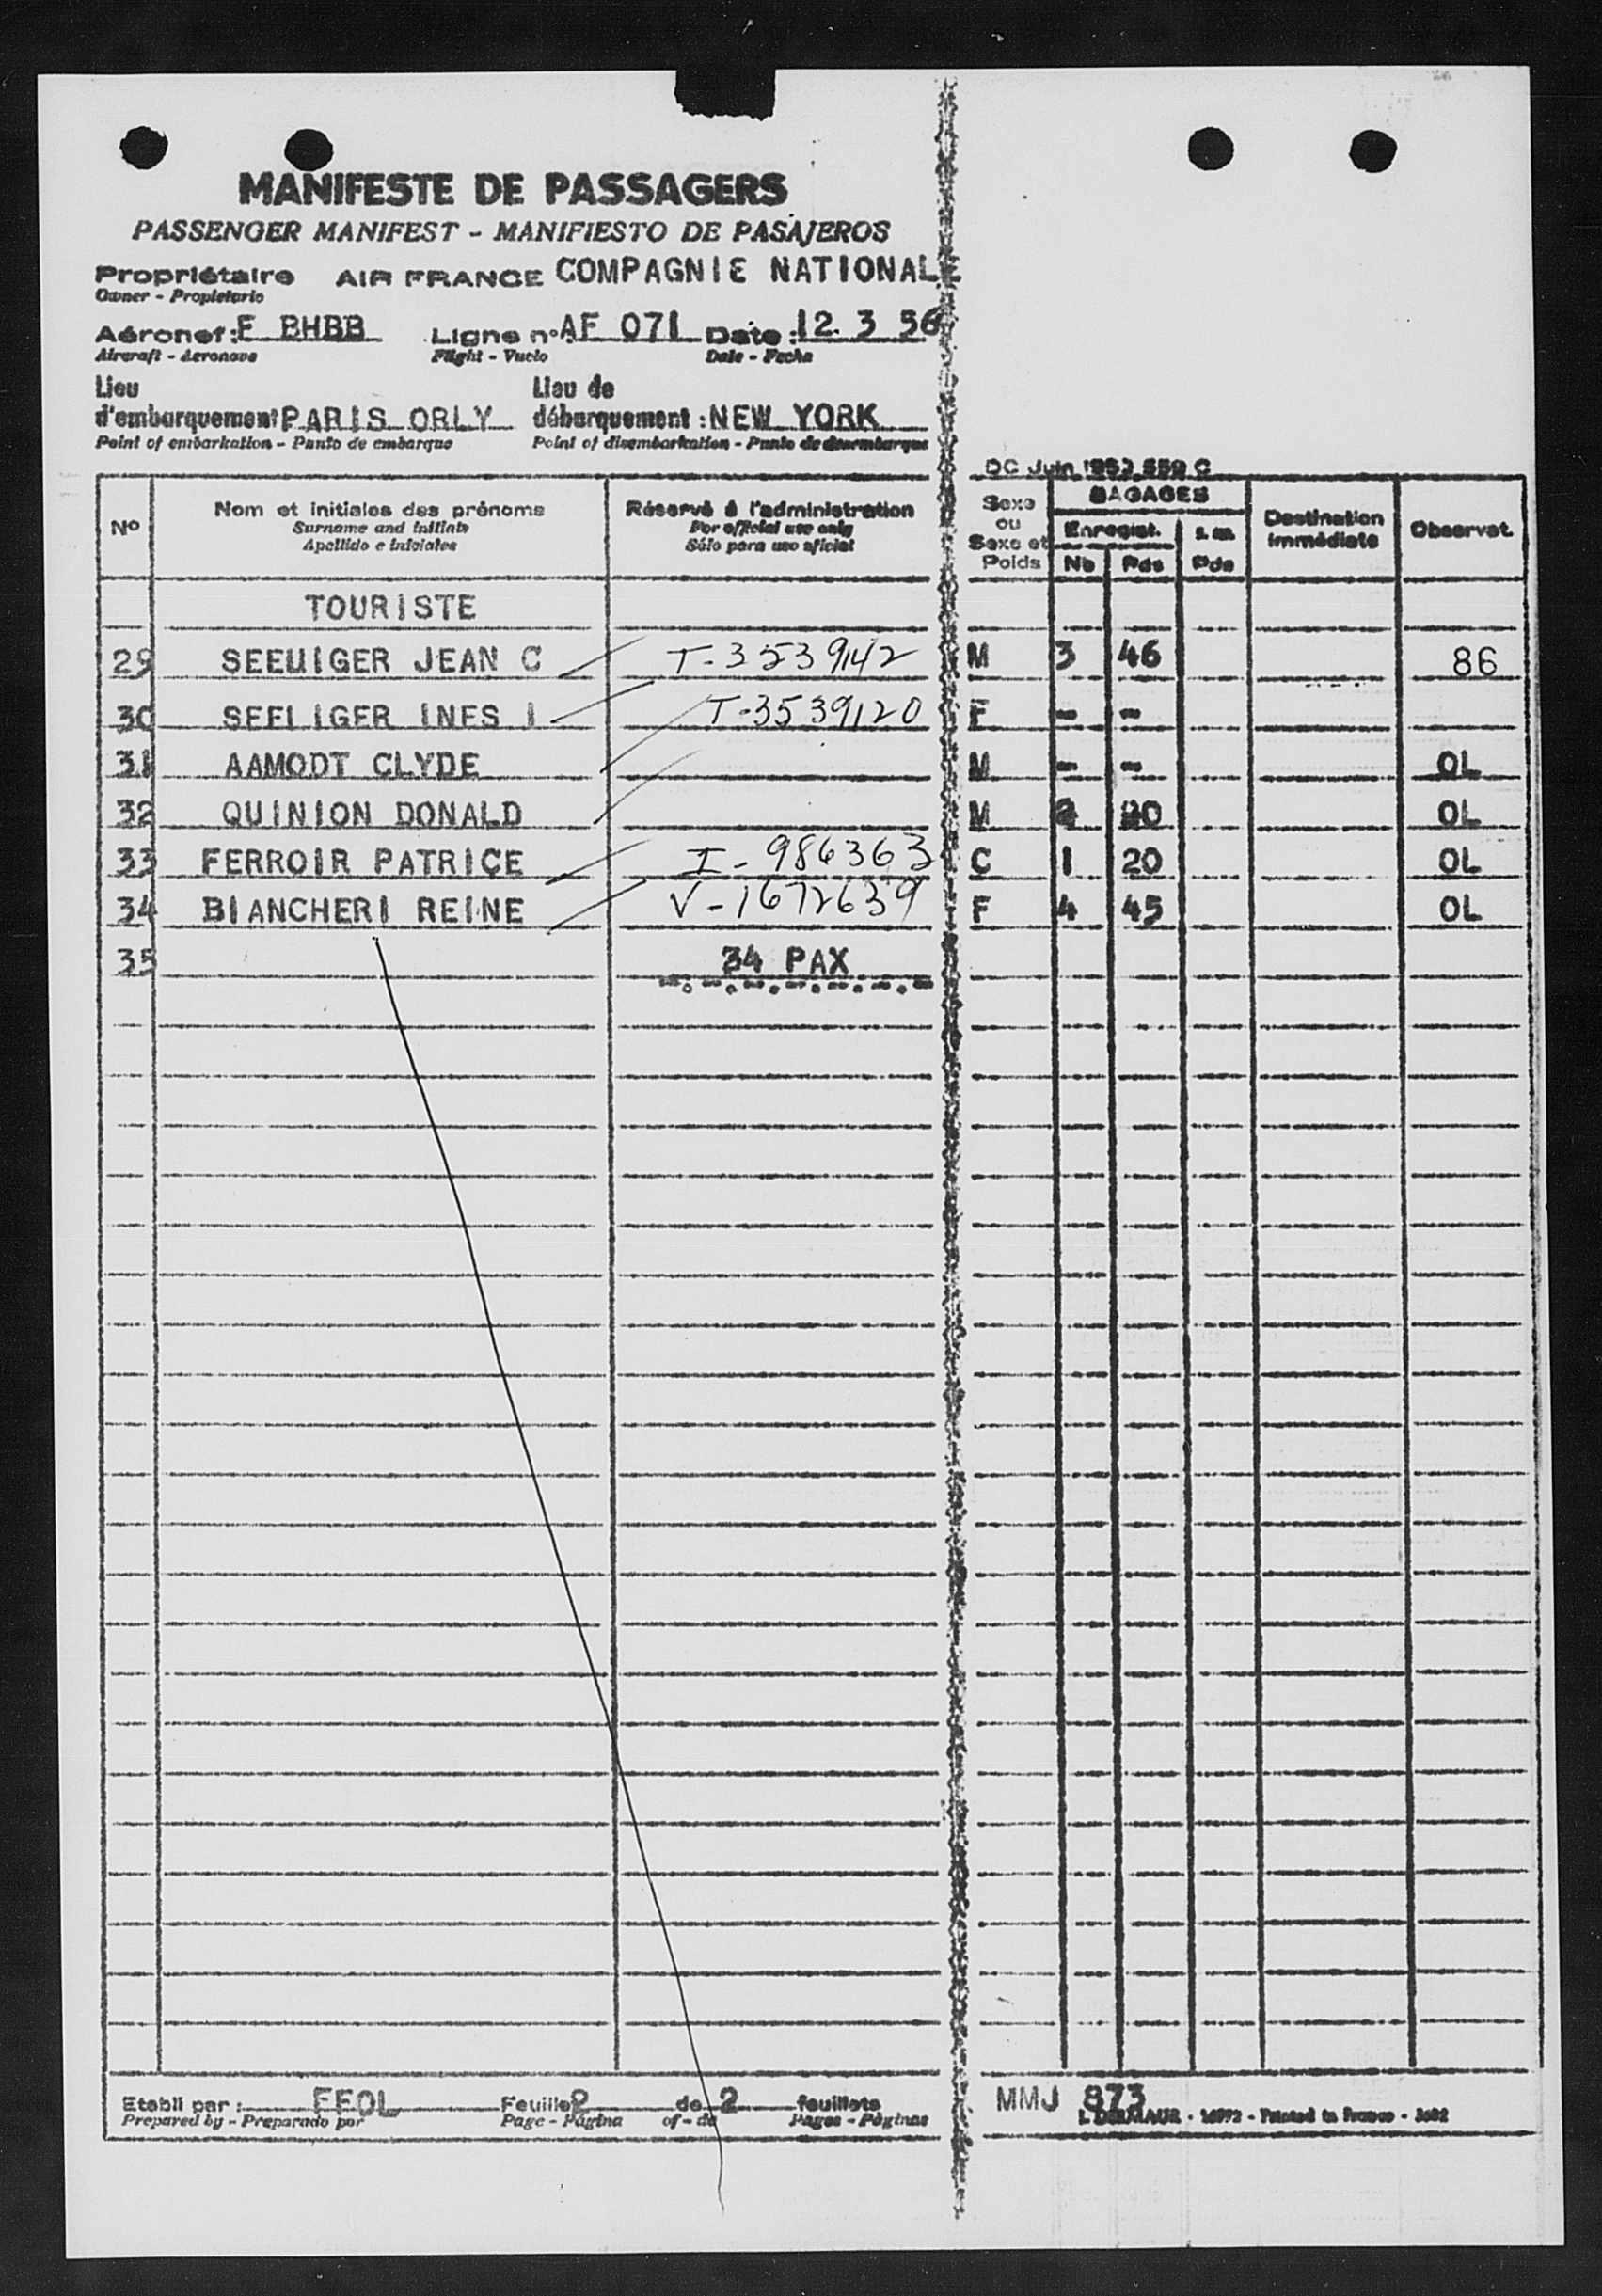 MANIFESTE DE PASSAGERS
PASSENGER MANIFEST - MANIFIESTO DE PASAJEROS
Propriétaire AIR FRANCE COMPAGNIE NATIONALE
Owner - Propietario
Aéronef: F BHBB Ligne n° AF 071 Date: 12. 3 56
Aircraft - Aeronave Flight - Vuelo Date - Fecha
Lieu d'embarquement PARIS ORLY Lieu de débarquement: NEW YORK
Point of embarkation - Punto de embarque Point of disembarkation - Punto de desembarque
DC Juin
No Nom et initiales des prénoms Réservé à l'administration Sexe ou Sexe et Poids BAGAGES Destination immédiate Observat.
Surname and initials For official use only Enregist. s. m.
Apellido e iniciales Sólo para uso oficial Nb Pds Pds
TOURISTE
29 SEEUIGER JEAN C T-3539142 M 3 46 86
30 SEELIGER INES I T-3539120 F - -
31 AAMODT CLYDE M - - OL
32 QUINION DONALD M 20 OL
33 FERROIR PATRICE I-986363 C 1 20 OL
34 BIANCHERI REINE V-1672639 F 4 45 OL
35 34 PAX
Etabli par: FEOL Feuille 2 de 2 feuillets MMJ 873
Prepared by - Preparado por Page - Página of - de Pages - Páginas Printed in France